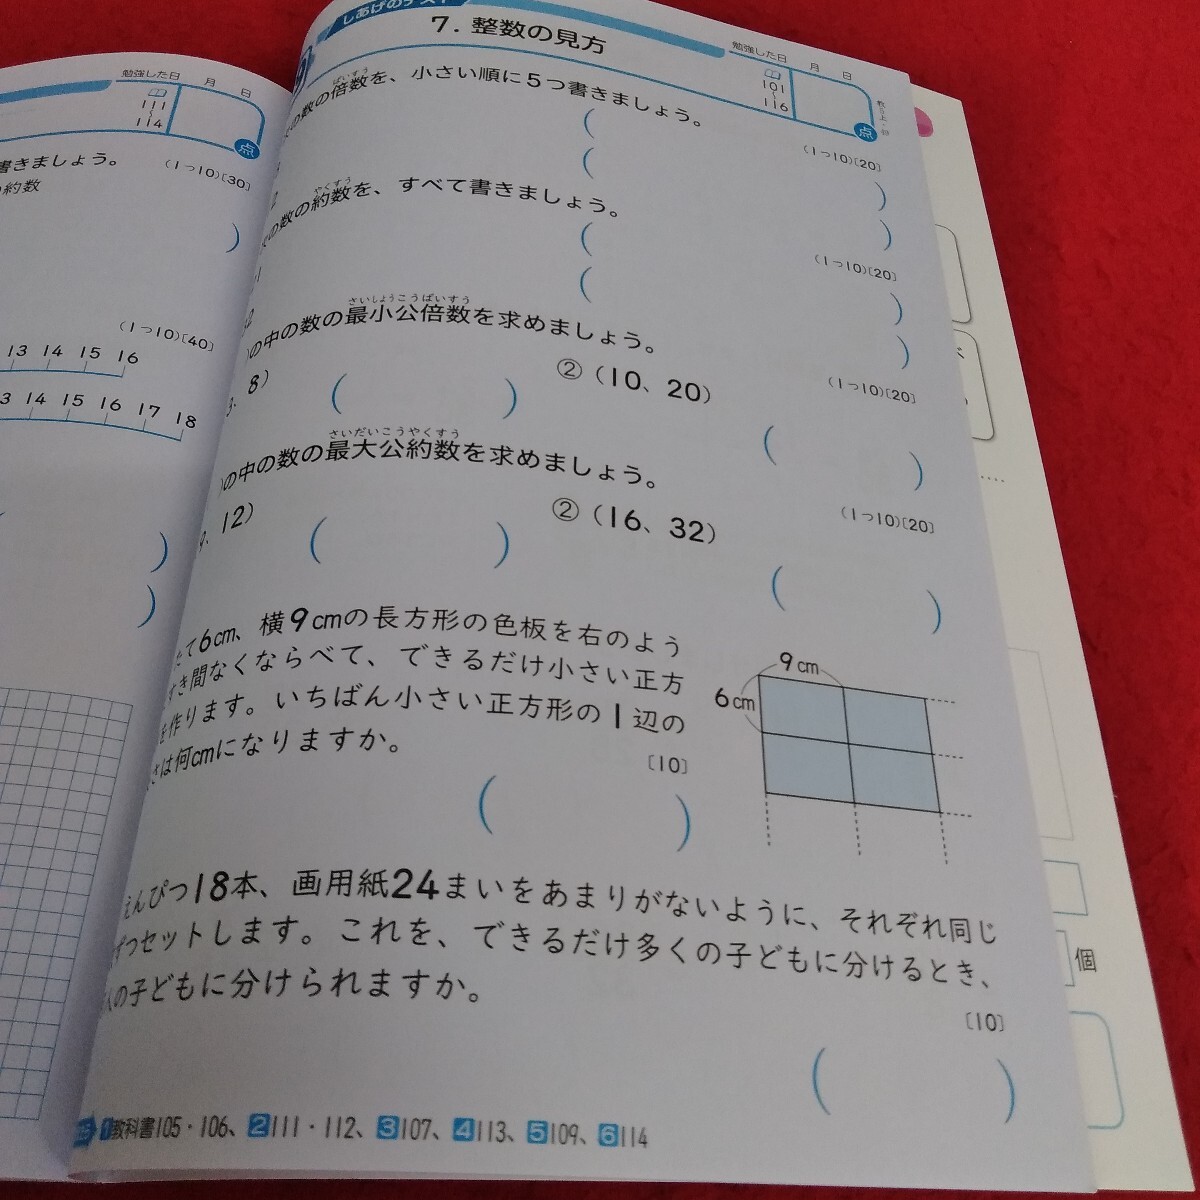 勉強した日 月 日
111
114
点
書きましょう。
(1つ10)〔30〕
の約数
(1つ10)〔40〕
13 14 15 16
3 14 15 16 17 18
しあげのテスト
7. 整数の見方
勉強した日 月 日
101
116
点
の数の倍数を、小さい順に5つ書きましょう。
ばいすう
(1つ10)〔20〕
の数の約数を、すべて書きましょう。
やくすう
(1つ10)〔20〕
の中の数の最小公倍数を求めましょう。
さいしょうこうばいすう
(1つ10)〔20〕
8)
②(10、20)
の中の数の最大公約数を求めましょう。
さいだいこうやくすう
(1つ10)〔20〕
12)
②(16、32)
たて6cm、横9cmの長方形の色板を右のよう
すき間なくならべて、できるだけ小さい正方
を作ります。いちばん小さい正方形の1辺の
さは何cmになりますか。
〔10〕
9cm
6cm
えんぴつ18本、画用紙24まいをあまりがないように、それぞれ同じ
ずつセットします。これを、できるだけ多くの子どもに分けるとき、
人の子どもに分けられますか。
〔10〕
1教科書105・106、2111・112、3107、4113、5109、6114
個